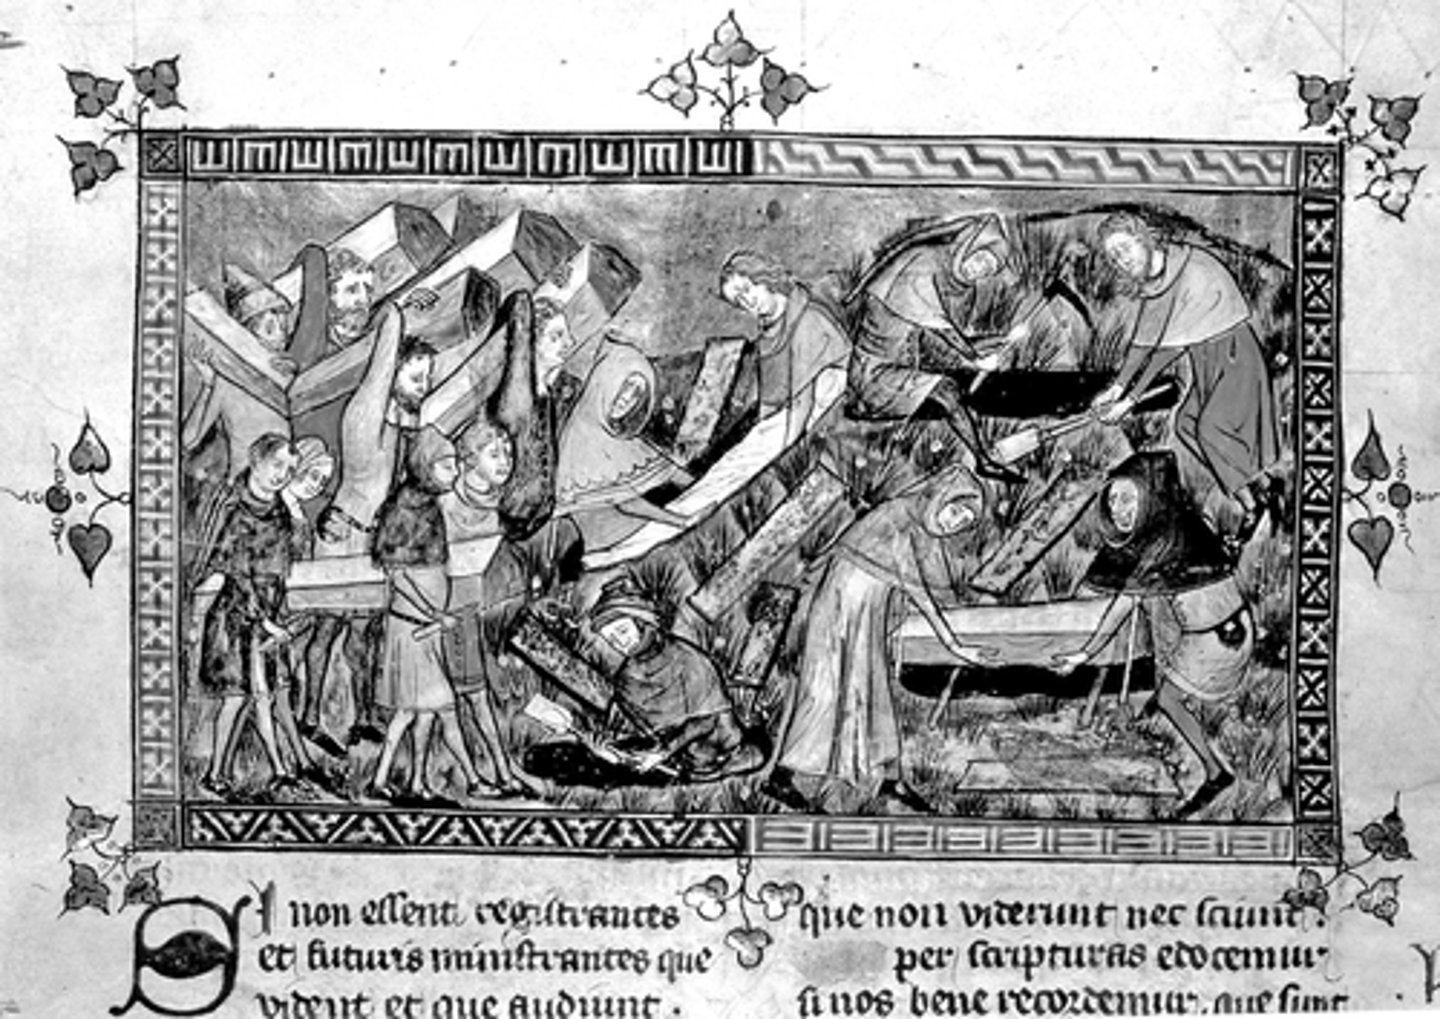 SI non essent registrantes
et futuris ministrantes que
vident et que audiunt .
que non viderunt nec sciunt .
per scripturas edocemur
si nos bene recordemur . que sunt